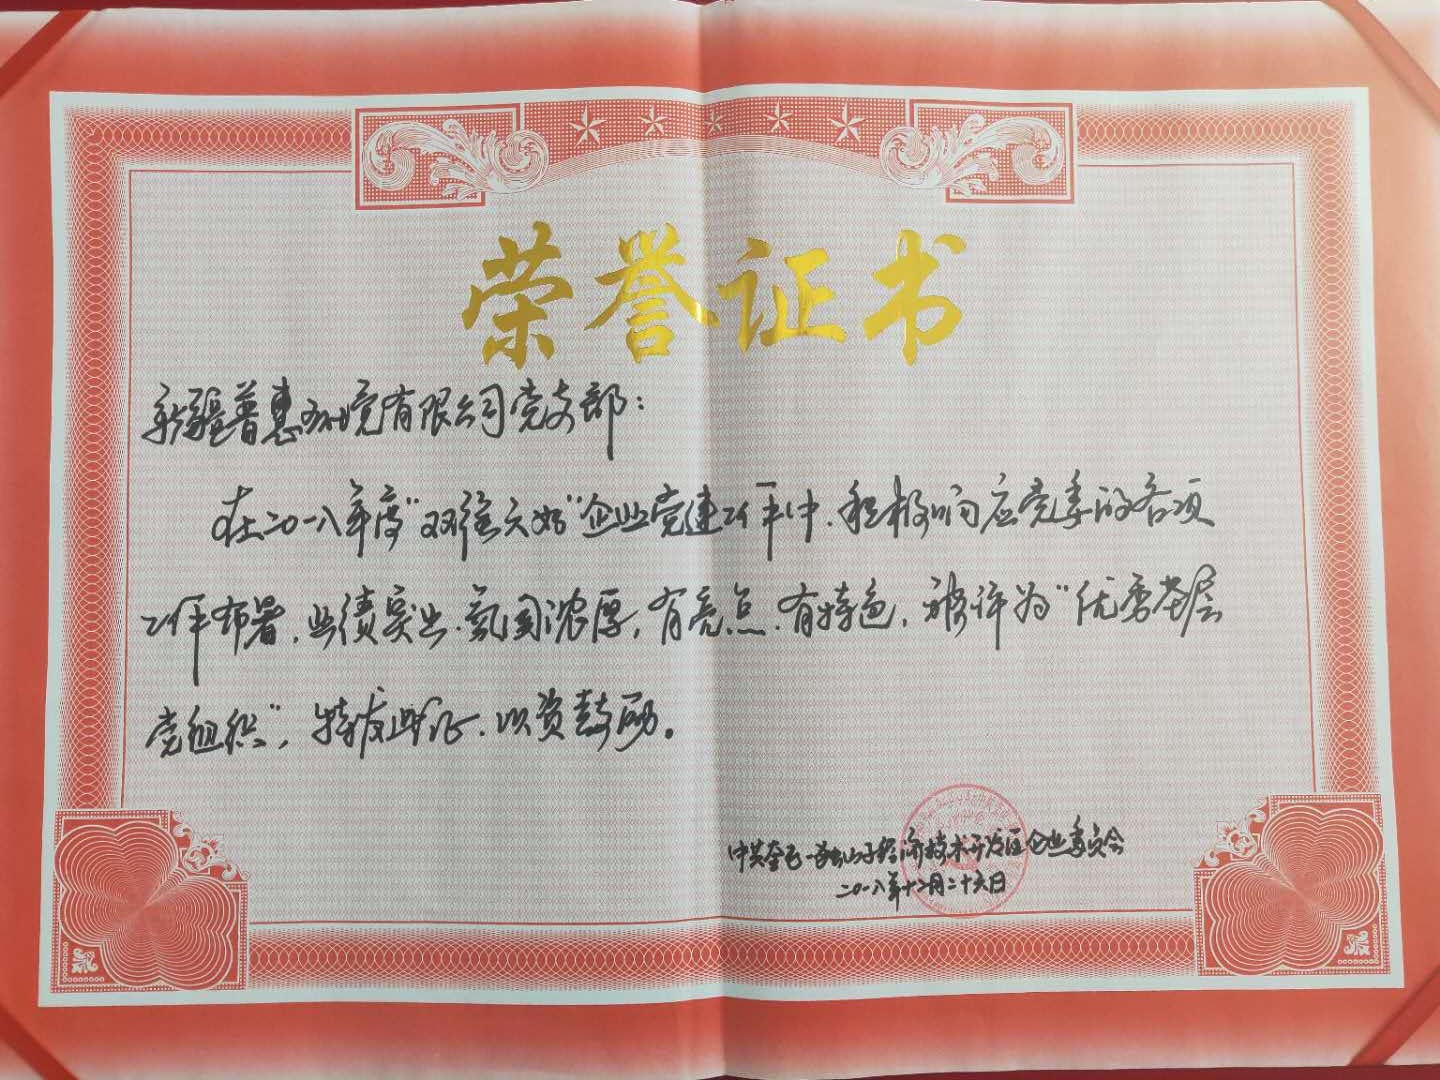 荣誉证书
新疆普惠环境有限公司党支部：
在二〇一八年度“双强六好”企业党建工作中，积极响应党委的各项
工作布署，业绩突出，氛围浓厚，有亮点，有特色，被评为“优秀基层
党组织”，特发此证，以资鼓励。
中共奎屯-独山子经济技术开发区企业委员会
二〇一八年十二月二十六日